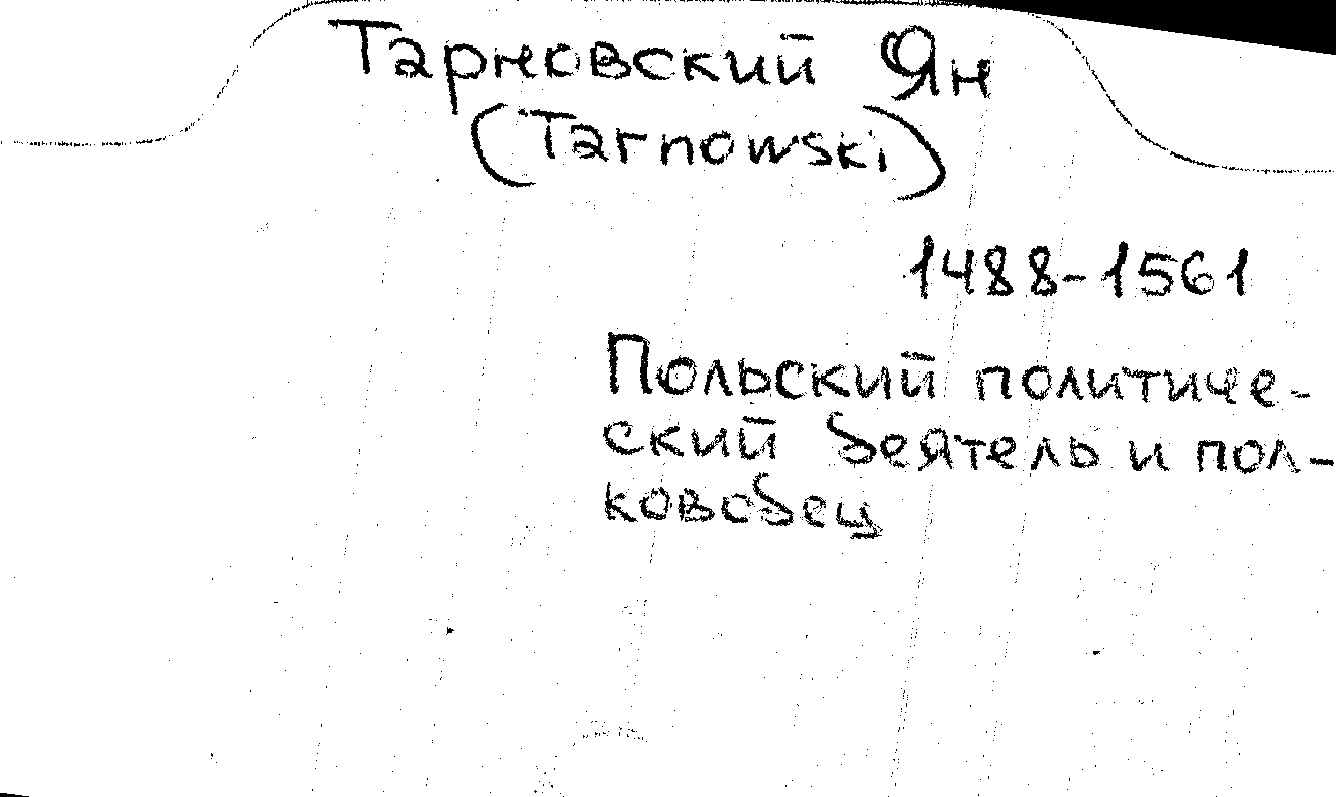 Тарновский Ян
(Tarnowski)
1488-1561
Польский политиче-
ский деятель и пол-
ководец